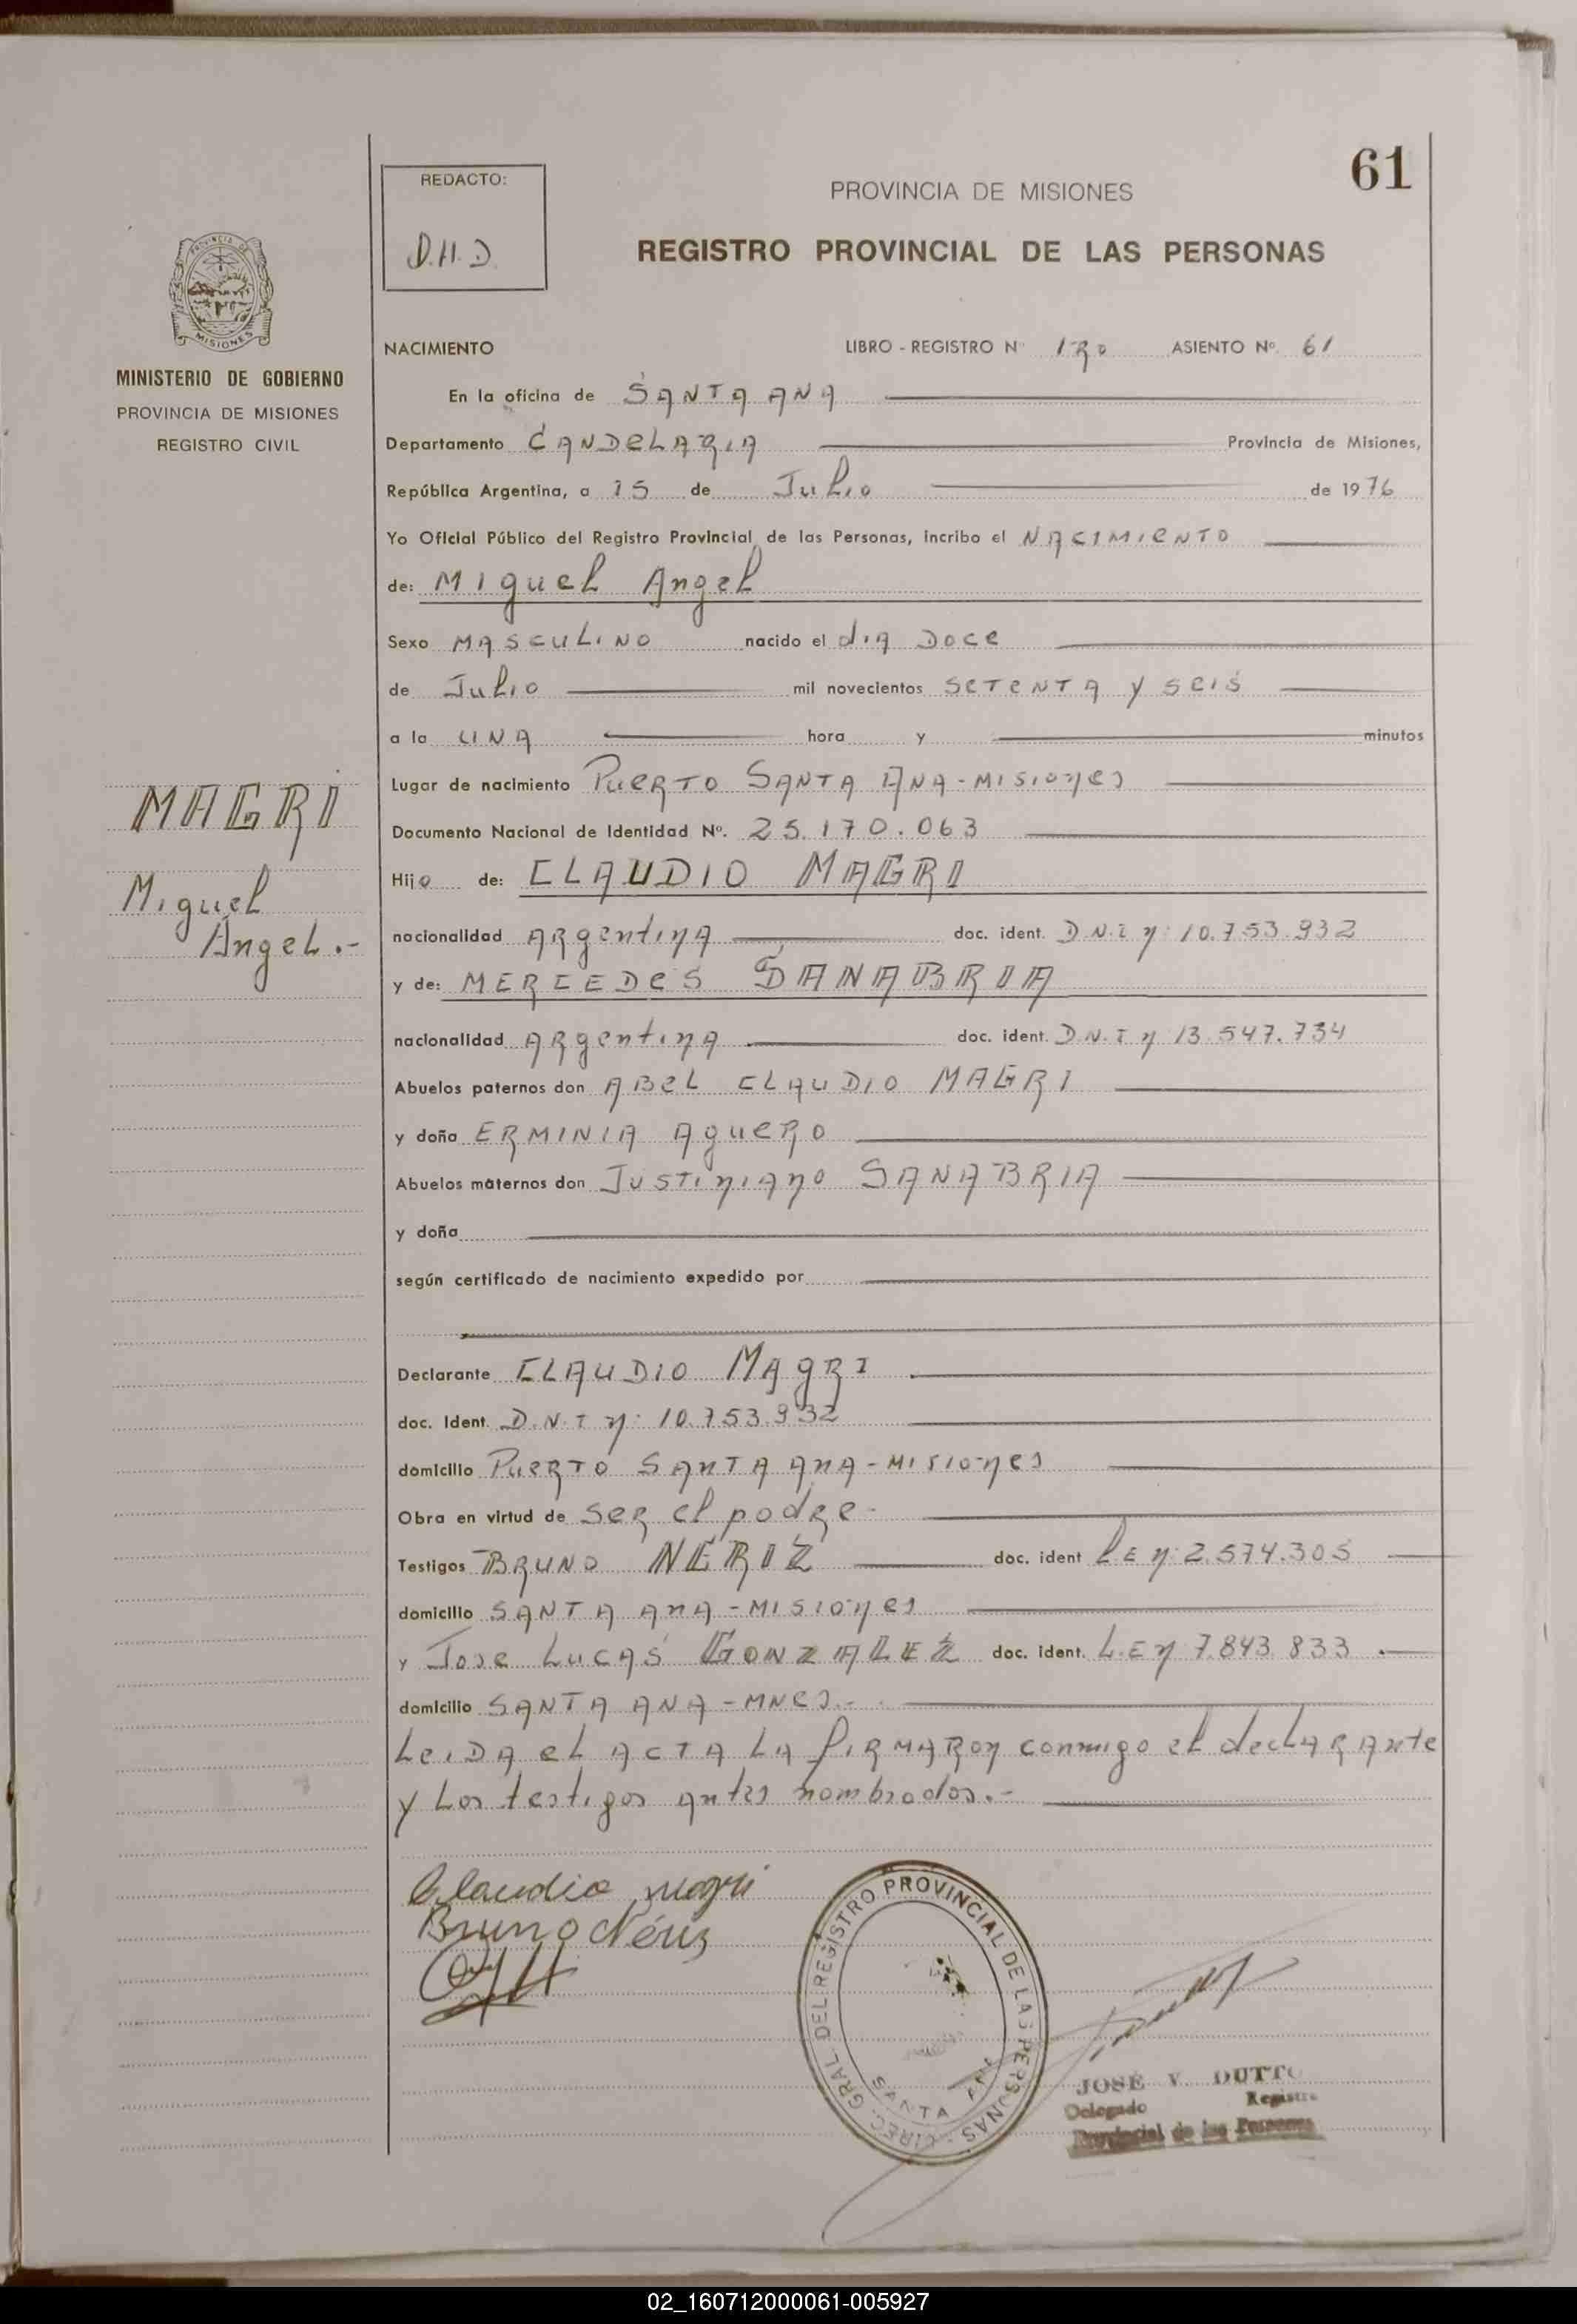 61
REDACTO:
D.H.D
PROVINCIA DE MISIONES
REGISTRO PROVINCIAL DE LAS PERSONAS
PROVINCIA DE
MISIONES
MINISTERIO DE GOBIERNO
PROVINCIA DE MISIONES
REGISTRO CIVIL
NACIMIENTO LIBRO - REGISTRO Nº 1Ro ASIENTO Nº. 61
En la oficina de SANTA ANA
Departamento CANDeLARIA Provincia de Misiones,
República Argentina, a 15 de Julio de 1976
Yo Oficial Público del Registro Provincial de las Personas, incribo el NACIMIeNTO
de: Miguel Angel
Sexo MASCULINO nacido el dia Doce
de Julio mil novecientos SeTeNTA y seis
a la UNA hora y minutos
Lugar de nacimiento PueRTO SANTA ANA - MISIONes
Documento Nacional de Identidad Nº. 25.170.063
Hijo de: CLAUDIO MAGRI
nacionalidad ARgentinA doc. ident. D.N.I n: 10.753.932
y de: MERCEDeS SANABRIA
nacionalidad ARgentinA doc. ident. D.N.I n 13.547.734
Abuelos paternos don ABeL CLAUDIO MAGRI
y doña ERMINIA AgueRO
Abuelos maternos don JUSTINIANO SANABRIA
y doña
según certificado de nacimiento expedido por
Declarante CLAUDIO MAgRI
doc. Ident. D.N.I n: 10.753.932
domicilio PueRTO SANTA ANA - MISIONes
Obra en virtud de SeR el padRe-
Testigos BRUNO NERIZ doc. ident L.E n: 2.574.305
domicilio SANTA ANA - MISIONes
y Jose LUCAS GONZALEZ doc. ident. L.E n 7.843.833.
domicilio SANTA ANA - MNes.-
LeiDA eL ACTA LA FIRMARon conmigo el decLARAnte
y Los testigos antes nombrados.-
MAGRI
Miguel
Angel.-
Claudio Magri
Bruno Nériz
DIREC. GRAL. DEL REGISTRO PROVINCIAL DE LAS PERSONAS
SANTA ANA
JOSE V. DUTTO
Delegado Registro
Provincial de las Personas
02_160712000061-005927